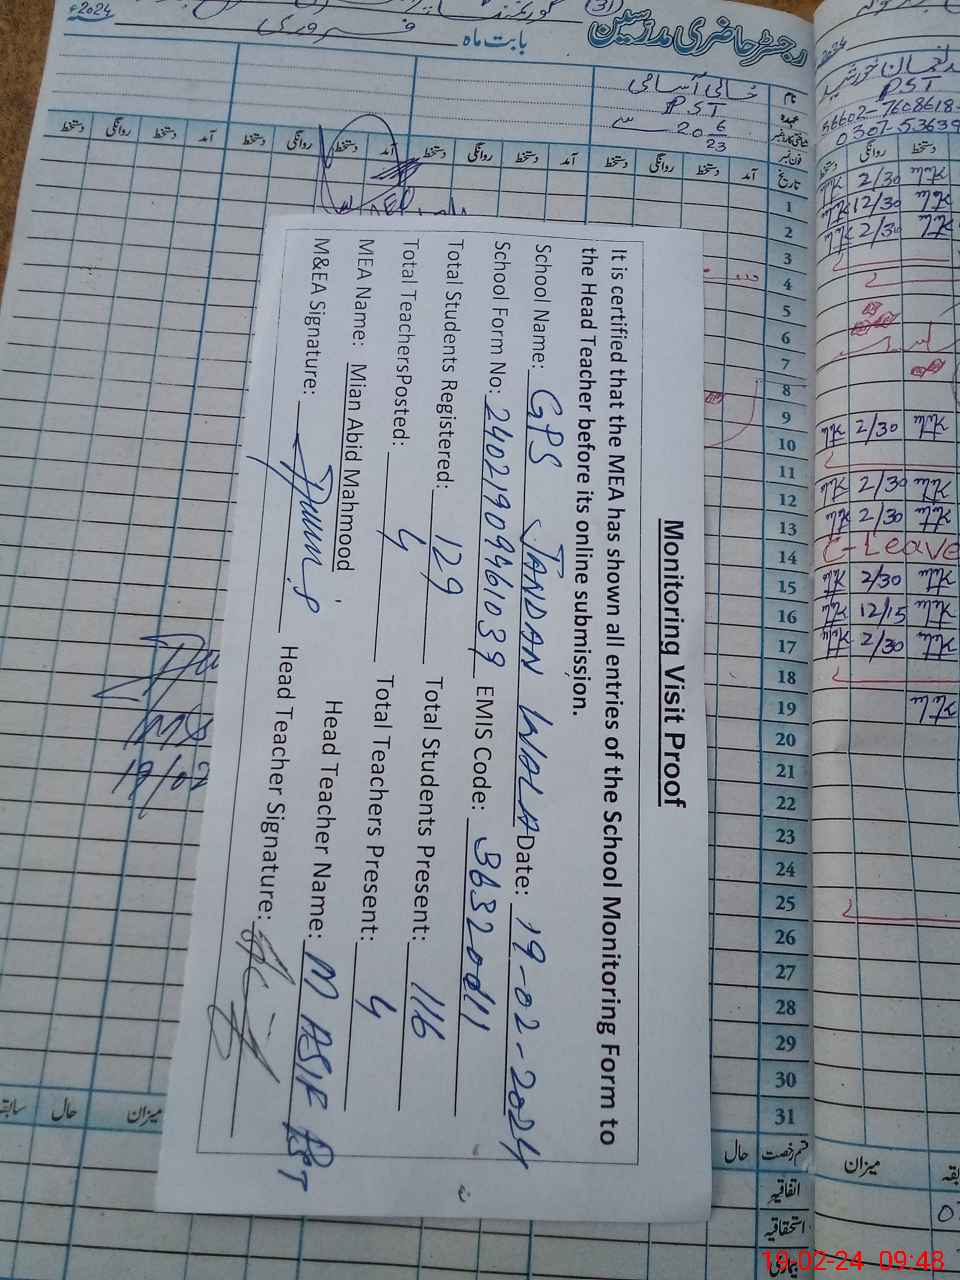 Monitoring Visit Proof
It is certified that the MEA has shown all entries of the School Monitoring Form to
the Head Teacher before its online submission.
School Name: GPS JANDAN WALA Date: 19-02-2024
School Form No: 24021909961039 EMIS Code:
Total Students Registered: 129 Total Students Present: 116
Total TeachersPosted: 4 Total Teachers Present: 4
MEA Name: Mian Abid Mahmood Head Teacher Name: M ASIF PST
M&EA Signature: Head Teacher Signature:
رجسٹر حاضری مدرسین
بابت ماہ فروری
2024ء
نام خالی آسامی
عہدہ PST
20 6/23
فون نمبر
تاریخ آمد دستخط روانگی دستخط آمد دستخط روانگی دستخط آمد دستخط روانگی دستخط آمد دستخط
1
2
3
4
5
6
7
8
9
10
11
12
13
14
15
16
17
18
19
20
21
22
23
24
25
26
27
28
29
30
31
قسم رخصت حال میزان حال سابقہ
اتفاقیہ
استحقاقیہ
بیماری
PST
دستخط روانگی دستخط
2/30
12/30
2/30
2/30
2/30
2/30
C-Leave
2/30
12/15
2/30
میزان
19-02-24 09:48